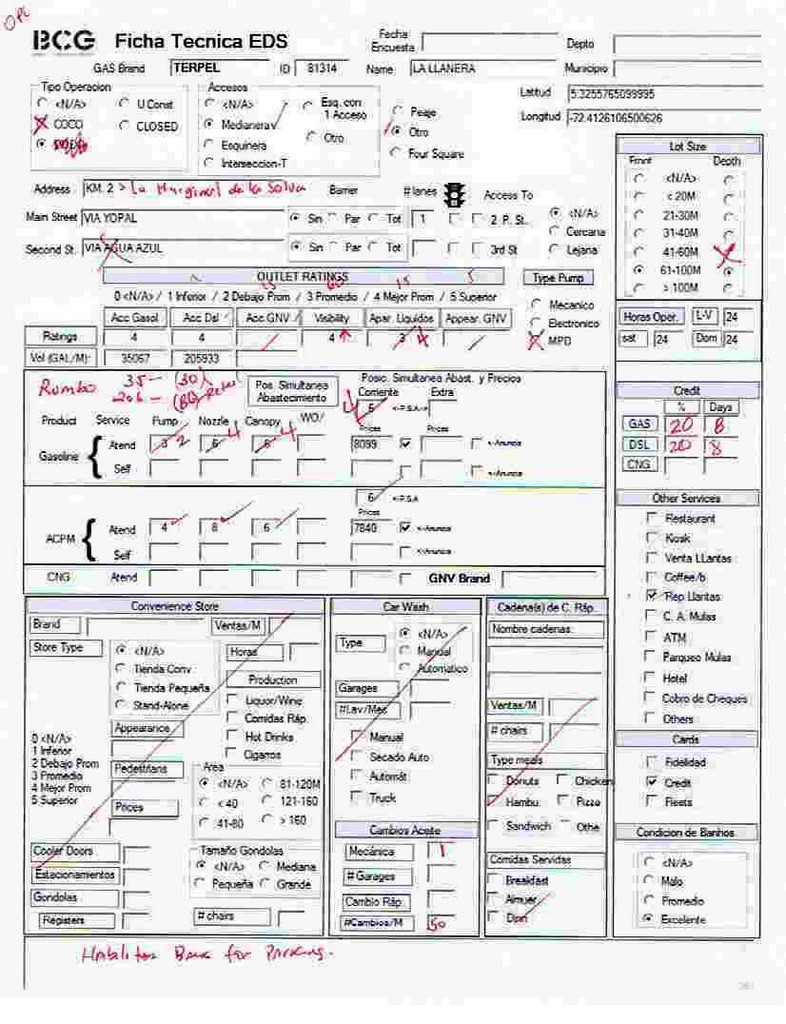 OPL
BCG Ficha Tecnica EDS
Fecha Encuesta
Depto
GAS Brand TERPEL ID 81314 Name LA LLANERA Municipio
Tipo Operacion
<N/A> U Const
COCO CLOSED
Accesos
<N/A> Esq. con 1 Acceso
Medianera Otro
Esquinera
Interseccion-T
Peaje
Otro
Four Square
Latitud 5.3255765099995
Longitud -72.4126106500626
Lot Size
Front Depth
<N/A>
< 20M
21-30M
31-40M
41-60M
61-100M
> 100M
Address KM. 2 > la Marginal de la Selva Barrier # lanes Access To
Main Street VIA YOPAL Sin Par Tot 1 2 P. St.
Second St. VIA AGUA AZUL Sin Par Tot 3rd St
<N/A>
Cercana
Lejana
OUTLET RATINGS
0 <N/A> / 1 Inferior / 2 Debajo Prom / 3 Promedio / 4 Mejor Prom / 5 Superior
Acc Gasol Acc Dsl Acc GNV Visibility Apar. Liquidos Appear. GNV
Ratings 4 4 4 3 4
Vol (GAL/M): 35067 205933
Type Pump
Mecanico
Electronico
MPD
Horas Oper. L-V 24
sat 24 Dom 24
Rumbo 35 - (30)
206 - (80)
Pos. Simultanea Abastecimiento
Posic. Simultanea Abast. y Precios
Corriente Extra
4 6 <-P.S.A->
Product Service Pump Nozzle Canopy WO/ Prices Prices
Gasoline Atend 3 2 6 4 6 4 8099 <-Anuncia <-Anuncia
Self <-Anuncia
6 <-P.S.A
Prices
ACPM Atend 4 8 6 7840 <-Anuncia
Self <-Anuncia
CNG Atend GNV Brand
Credit
% Days
GAS 20 8
DSL 20 8
CNG
Other Services
Restaurant
Kiosk
Venta LLantas
Coffee/b
Rep Llantas
C. A. Mulas
ATM
Parqueo Mulas
Hotel
Cobro de Cheques
Others
Cards
Fidelidad
Credit
Fleets
Condicion de Banhos
<N/A>
Malo
Promedio
Excelente
Convenience Store
Brand Ventas/M
Store Type
<N/A>
Tienda Conv
Tienda Pequeña
Stand-Alone
Horas
Production
Liquor/Wine
Comidas Ráp.
Hot Drinks
Cigarros
0 <N/A>
1 Inferior
2 Debajo Prom
3 Promedio
4 Mejor Prom
5 Superior
Appearance
Pedestrians
Prices
Area
<N/A> 81-120M
< 40 121-160
41-80 > 160
Cooler Doors
Estacionamientos
Gondolas
Registers
Tamaño Gondolas
<N/A> Mediana
Pequeña Grande
# chairs
Car Wash
Type
<N/A>
Manual
Automatico
Garages
#Lav/Mes
Manual
Secado Auto
Automát
Truck
Cambios Aceite
Mecánica 1
# Garages
Cambio Ráp.
#Cambios/M 50
Cadena(s) de C. Ráp.
Nombre cadenas:
Ventas/M
# chairs
Type meals
Donuts Chicken
Hambu. Pizza
Sandwich Othe
Comidas Servidas
Breakfast
Almuer
Dinn
for Parking.